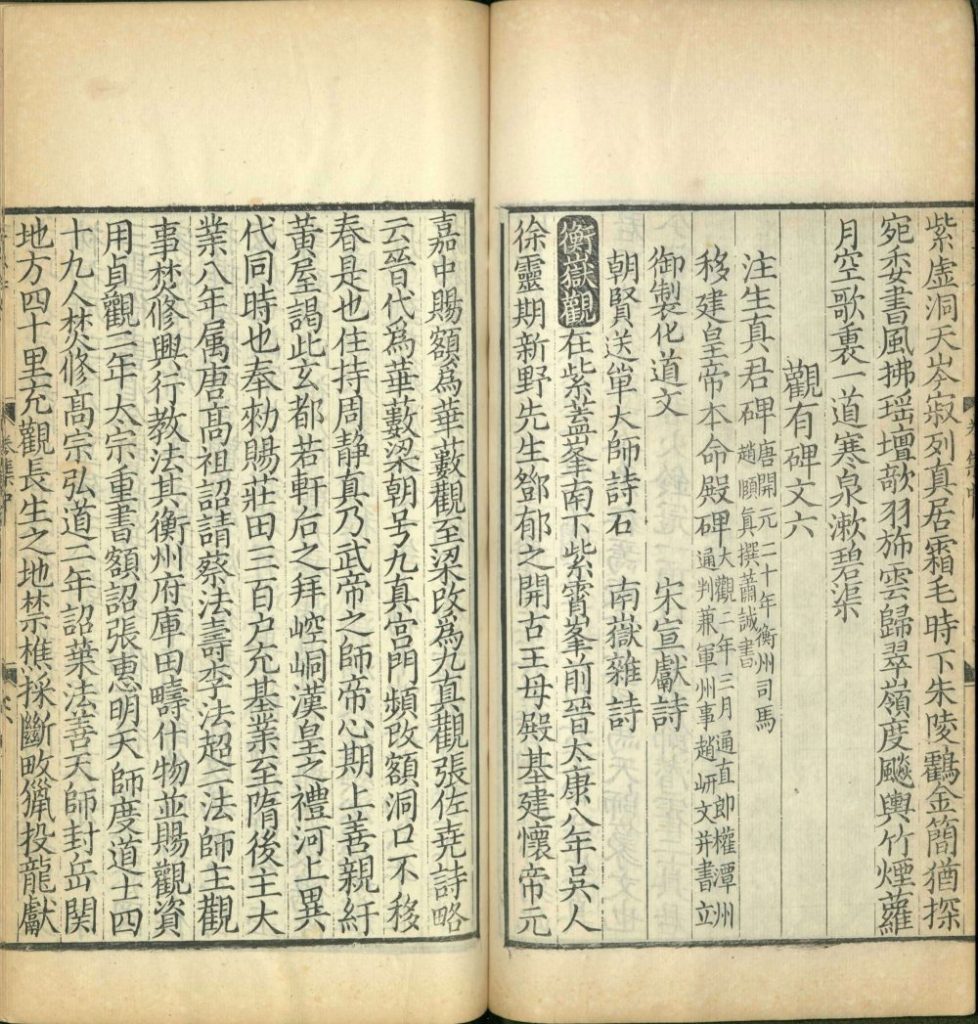 紫虛洞天岑寂列真居霜毛時下朱陵鸖金簡猶探
宛委書風拂瑶壇歌羽斾雲歸翠嶺度飈輿竹煙蘿
月空歌裏一道寒泉漱碧渠
觀有碑文六
注生真君碑唐開元二十年衡州司馬趙頤真撰蕭誠書
移建皇帝本命殿碑大觀二年三月通直郎權潭州通判兼軍州事趙岍文并書立
御製化道文 宋宣獻詩
朝賢送單大師詩石 南嶽雜詩
衡嶽觀在紫蓋峯南下紫霄峯前晉太康八年吳人
徐靈期新野先生鄧郁之開古王母殿基建懷帝元
嘉中賜額爲華藪觀至梁改爲九真觀張佐堯詩略
云晉代爲華藪梁朝号九真宫門頻改額洞口不移
春是也住持周静真乃武帝之師帝心期上善親紆
黃屋謁此玄都若軒后之拜崆峒漢皇之禮河上異
代同時也奉勑賜莊田三百户充基業至隋後主大
業八年属唐髙祖詔請蔡法壽李法超二法師主觀
事焚修興行教法其衡州府庫田疇什物並賜觀資
用貞觀二年太宗重書額詔張惠明天師度道士四
十九人焚修髙宗弘道二年詔葉法善天師封岳関
地方四十里充觀長生之地禁樵採斷畋獵投龍獻